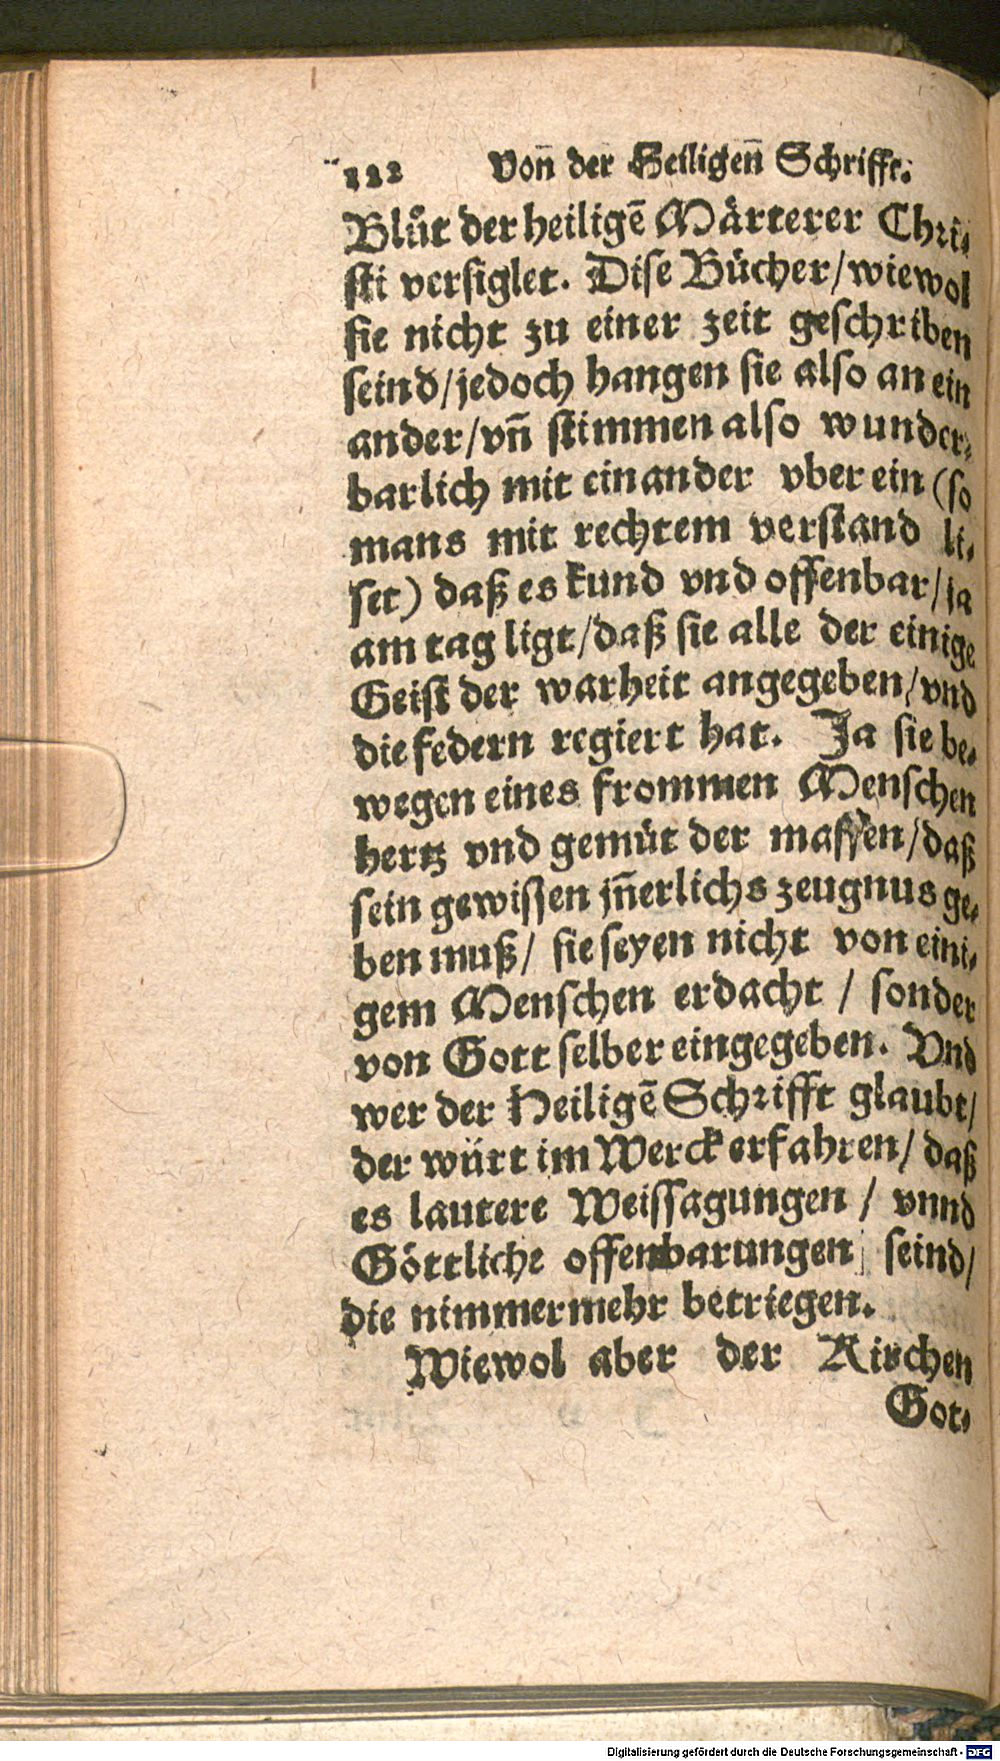 122 Von̄ der Heiligen̄ Schrifft.
Blůt der heiligē Märterer Chri⸗
sti versiglet. Dise Bücher/wiewol
sie nicht zu einer zeit geschriben
seind/jedoch hangen sie also an ein
ander/vn̄ stimmen also wunder⸗
barlich mit einander vber ein (so
mans mit rechtem verstand li⸗
set) daß es kund vnd offenbar/ja
am tag ligt/daß sie alle der einige
Geist der warheit angegeben/vnd
die federn regiert hat. Ja sie be⸗
wegen eines frommen Menschen
hertz vnd gemüt der massen/daß
sein gewissen jn̄erlichs zeugnus ge⸗
ben muß/ sie seyen nicht von eini⸗
gem Menschen erdacht / sonder
von Gott selber eingegeben. Vnd
wer der Heiligē Schrifft glaubt/
der würt im Werck erfahren/ daß
es lautere Weissagungen / vnnd
Göttliche offenbarungen seind/
die nimmermehr betriegen.
Wiewol aber der Kirchen
Got⸗
Digitalisierung gefördert durch die Deutsche Forschungsgemeinschaft - DFG